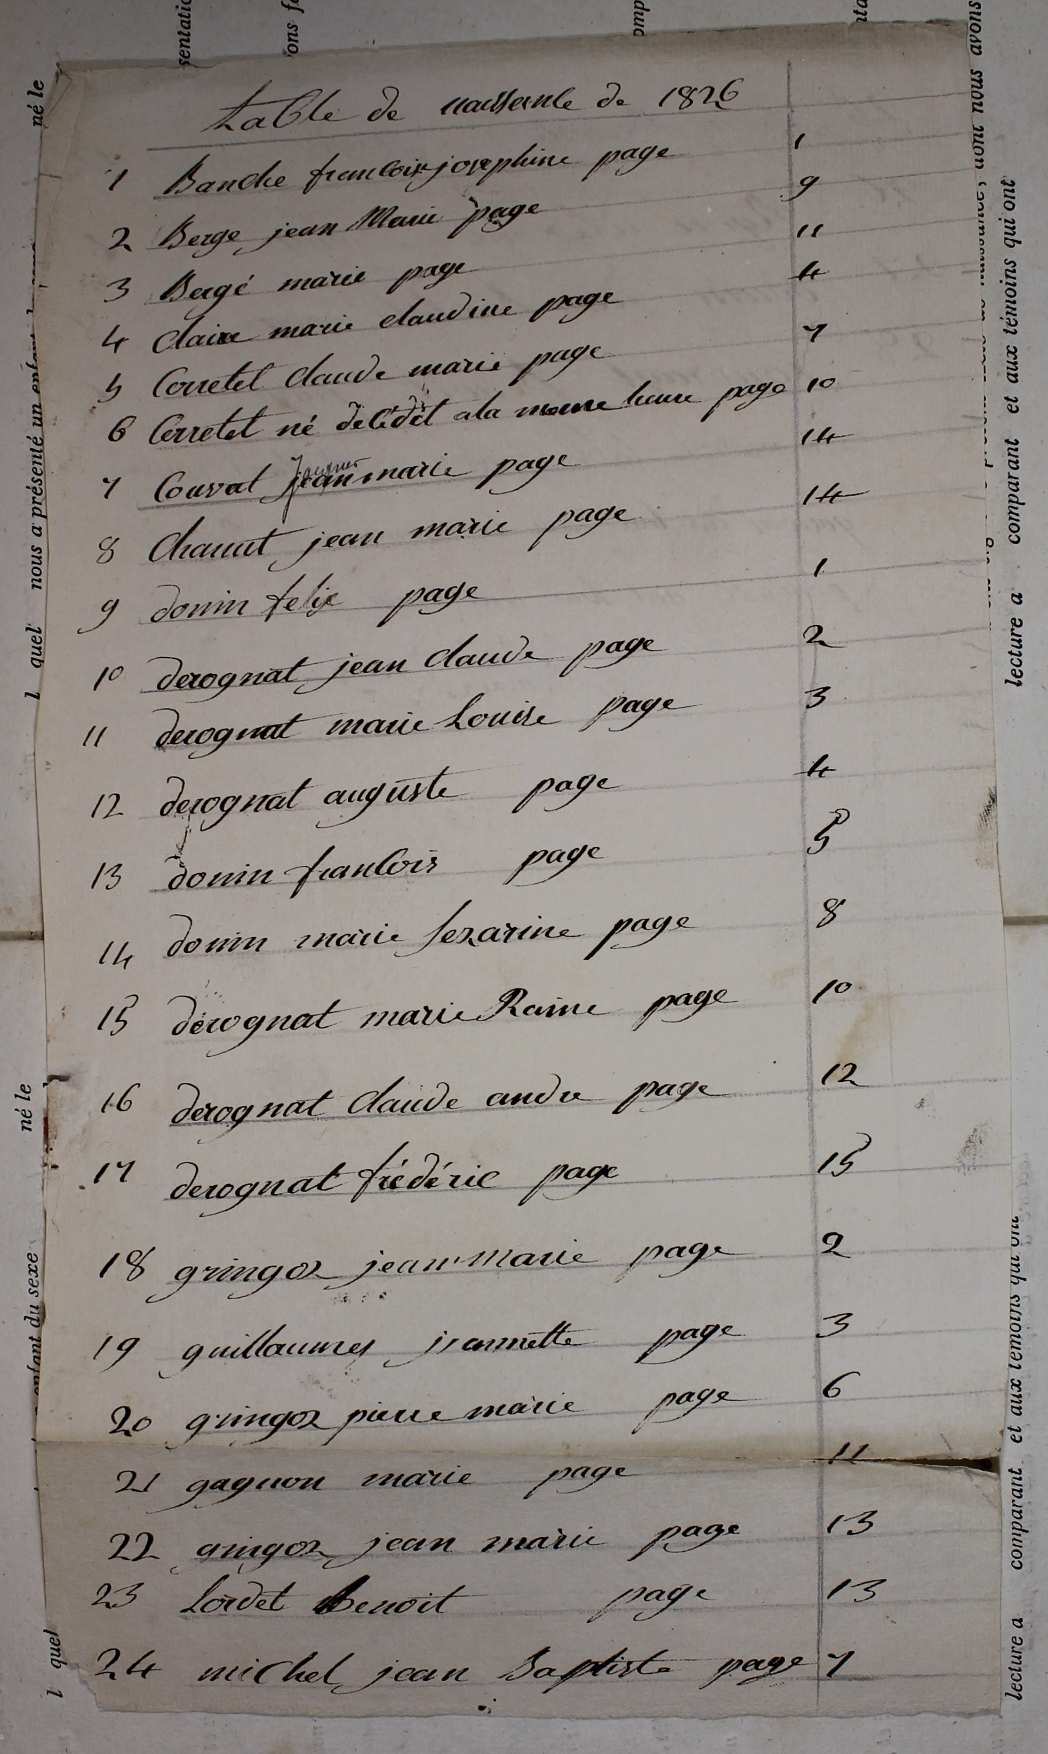 table de naissance de 1826
1 Banche francoise josephine page 1
2 Berge jean Marie page 9
3 Bergé marie page 11
4 Claire marie claudine page 4
5 Corretel Claude marie page 7
6 Corretel né décédét a la meme heure page 10
7 Couvat jean marie page 14
8 Chanut jean marie page 14
9 donin felix page 1
10 derognat jean Claude page 2
11 derognat marie Louise page 3
12 derognat auguste page 4
13 donin francois page 5
14 donin marie Sezarine page 8
15 dérognat marie Raine page 10
16 derognat Claude andre page 12
17 derognat frédéric page 15
18 gringoz jean Marie page 2
19 guillaumes jeannette page 3
20 gringoz pierre marie page 6
21 gagnon marie page 11
22 gringoz jean marie page 13
23 Lordet Benoit page 13
24 michel jean Baptiste page 7
né le
l quel nous a présenté un enfant
né le
enfant du sexe
l quel
dont nous avons
lecture a comparant et aux témoins qui ont
lecture a comparant et aux témoins qui ont